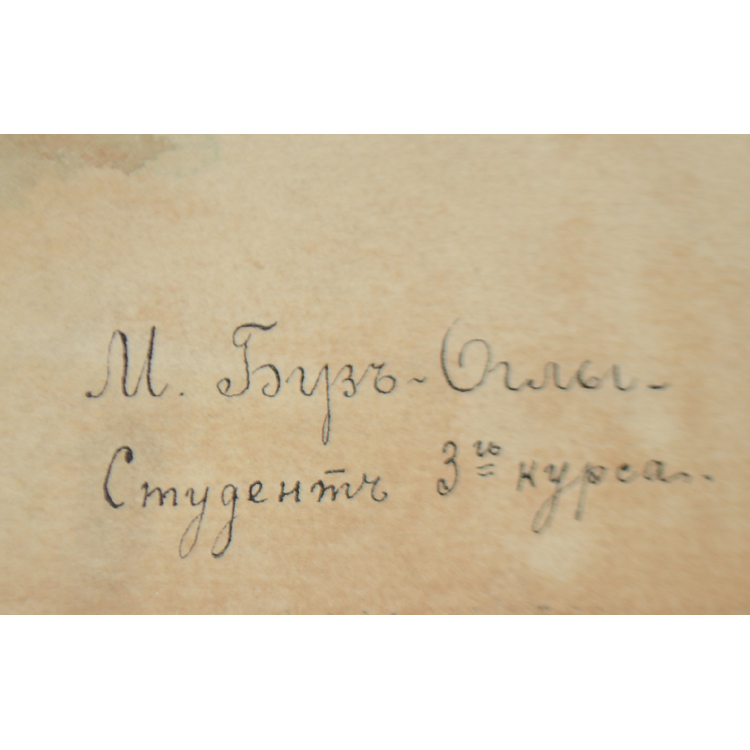 М. Бузъ-Оглы.
Студентъ 3го курса.